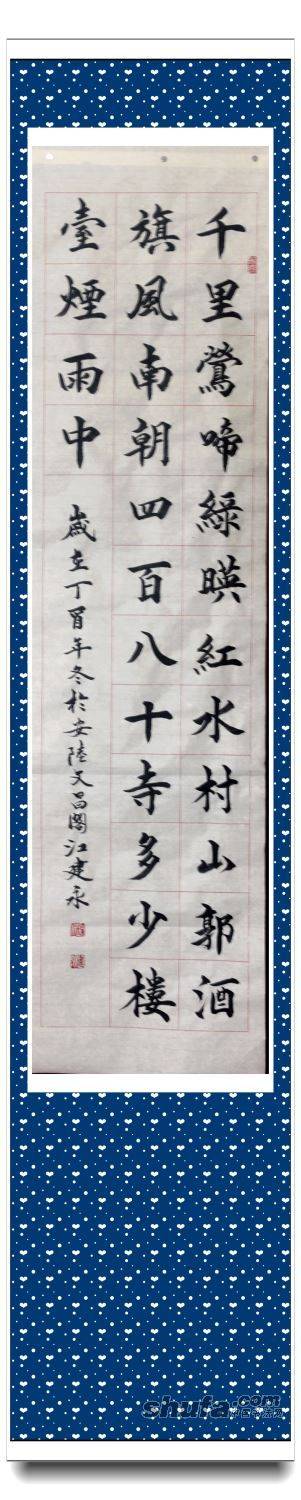 千里鶯啼綠暎紅水村山郭酒
旗風南朝四百八十寺多少樓
臺煙雨中
歲在丁酉年冬於安陸文昌閣江建永
shufa.com
中国书法网